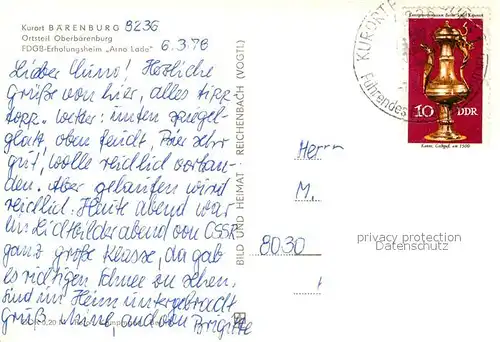 Kurort BÄRENBURG 8236
Ortsteil Oberbärenburg
FDGB-Erholungsheim „Arno Lade"
6.3.78
Lieber Kuno! Herzliche
grüße von hier, alles tipp
topp. Wetter: unten spiegel-
glatt, oben feucht, Bier sehr
gut, Wolle reichlich vorhan-
den. Aber gelaufen wird
reichlich. Heute abend war
ein Lichtbilderabend von CSSR
ganz große Klasse, da gab
es richtigen Schnee zu sehen,
sind im Heim untergebracht
Gruß und von Brigitte
BILD UND HEIMAT REICHENBACH (VOGTL)
KURORT
Führendes
10 DDR
Kanne, Goldguß, um 1500
Herrn
M.
8030
privacy protection
Datenschutz